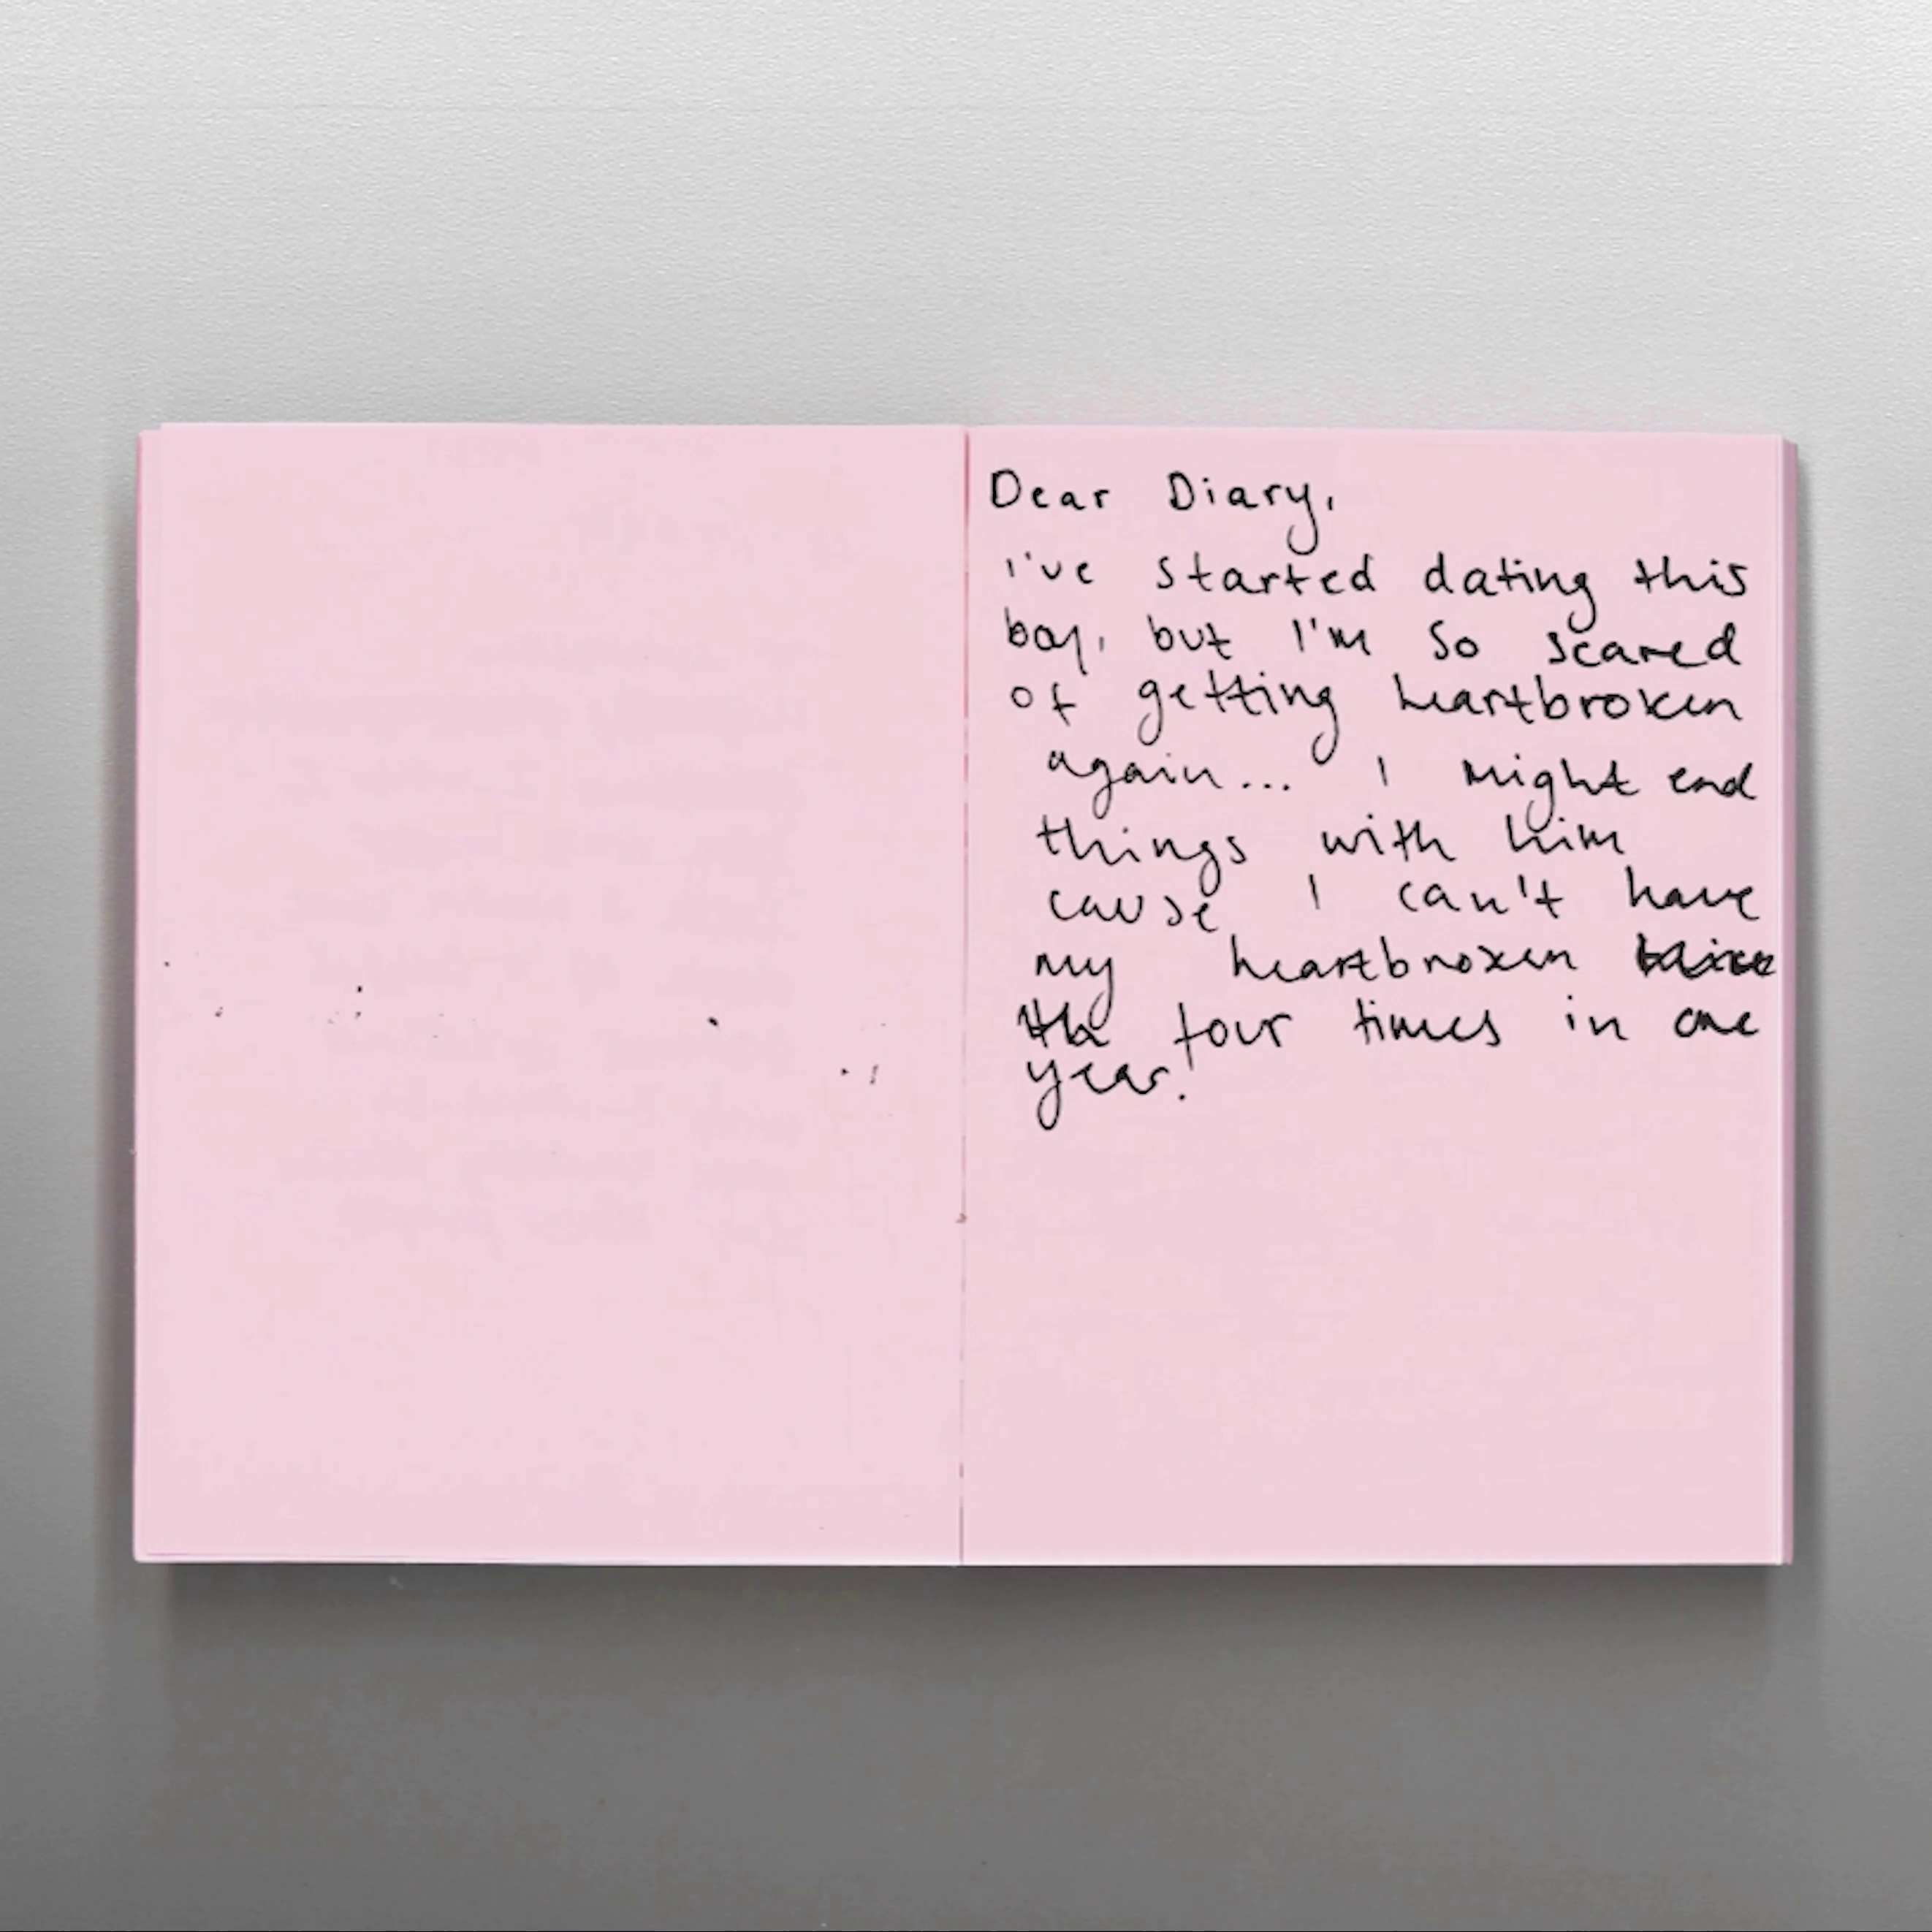 Dear Diary,
I've started dating this
boy, but I'm so scared
of getting heartbroken
again... I might end
things with him
cause I can't have
my heartbroken twice
th four times in one
year.